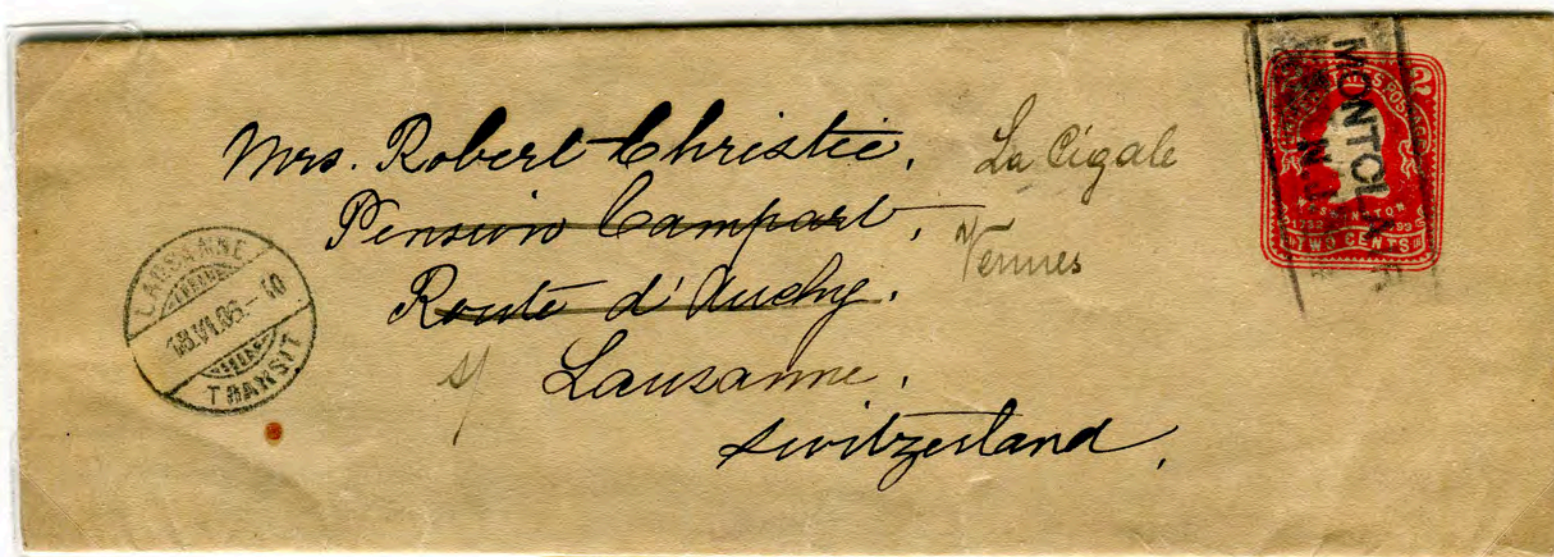 Mrs. Robert Christie, La Cigale
Pension Campart,
Vennes
Route d'Auchy.
s/ Lausanne,
Switzerland,
LAUSANNE
18.VI.06.-10
TRANSIT
MONTCLAIR
N.J.
UNITED STATES POSTAGE
2
WASHINGTON
1732 1799
TWO CENTS